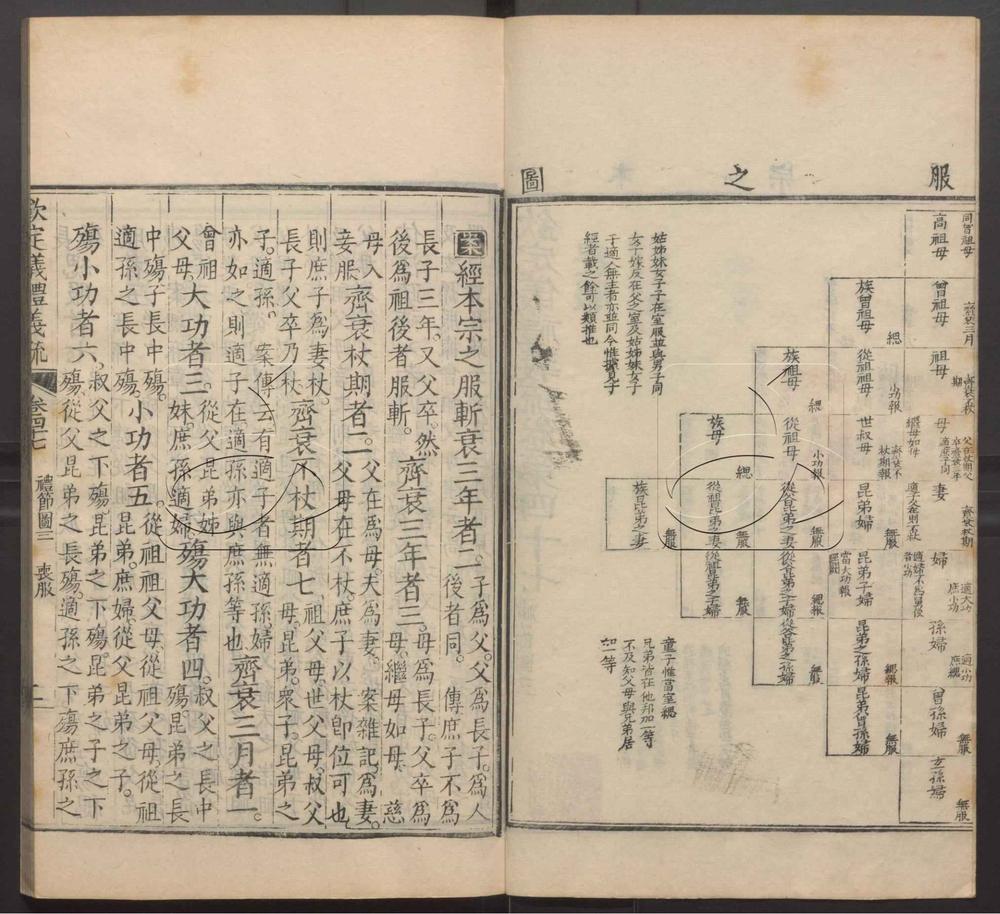 服之圖
同曾祖母
高祖母
齊衰三月
曾祖母
齊衰不杖期
祖母
父在杖期父
卒齊衰三年
繼母如母
母
齊衰杖期
妻
適大功
庶小功
適婦不爲舅後
者小功
婦
適小功
庶緦
孫婦
無服
曾孫婦
無服
玄孫婦
緦
族曾祖母
小功報
從祖祖母
齊衰不
杖期報
世叔母
無服
昆弟婦
大功報
昆弟子婦
緦報
昆弟之孫婦
無服
昆弟曾孫婦
緦
族祖母
小功報
從祖母
無服
從父昆弟之妻
緦報
從父昆弟之子婦
無服
從父昆弟之孫婦
緦
族母
無服
從祖昆弟之妻
無服
從祖昆弟之子婦
無服
族昆弟之妻
姑姊妹女子子在室服並與男子同
女子嫁反在父之室及姑姊妹女子
子適人無主者亦並同今惟據見于
經者載之餘可以類推也
童子惟當室緦
兄弟皆在他邦加一等
不及知父母與兄弟居
加一等
案經本宗之服斬衰三年者二。子爲父。父爲長子。爲人
後者同。傳庶子不爲
長子三年。又父卒。然
後爲祖後者服斬。齊衰三年者三。母爲長子。父卒爲
母。繼母如母。慈
母入
妾服齊衰杖期者二。父在爲母。夫爲妻。案雜記。爲妻。
父母在不杖。庶子以杖卽位可也
則庶子爲妻杖。
長子父卒乃杖齊衰不杖期者七。祖父母。世父母。叔父
母。昆弟。衆子。昆弟之
子。適孫。案傳云有適子者無適孫。孫婦
亦如之則適子在適孫亦與庶孫等也。齊衰三月者一。
曾祖
父母。大功者三。從父昆弟姊
妹。庶孫。適婦。殤大功者四。叔父之長中
殤。昆弟之長
中殤。子長中殤。
適孫之長中殤。小功者五。從祖祖父母。從祖父母。從祖
昆弟。庶婦。從父昆弟之子。
殤小功者六。叔父之下殤。昆弟之下殤。昆弟之子之下
殤。從父昆弟之長殤。適孫之下殤。庶孫之
欽定儀禮義疏 卷四十七 禮節圖三 喪服 二